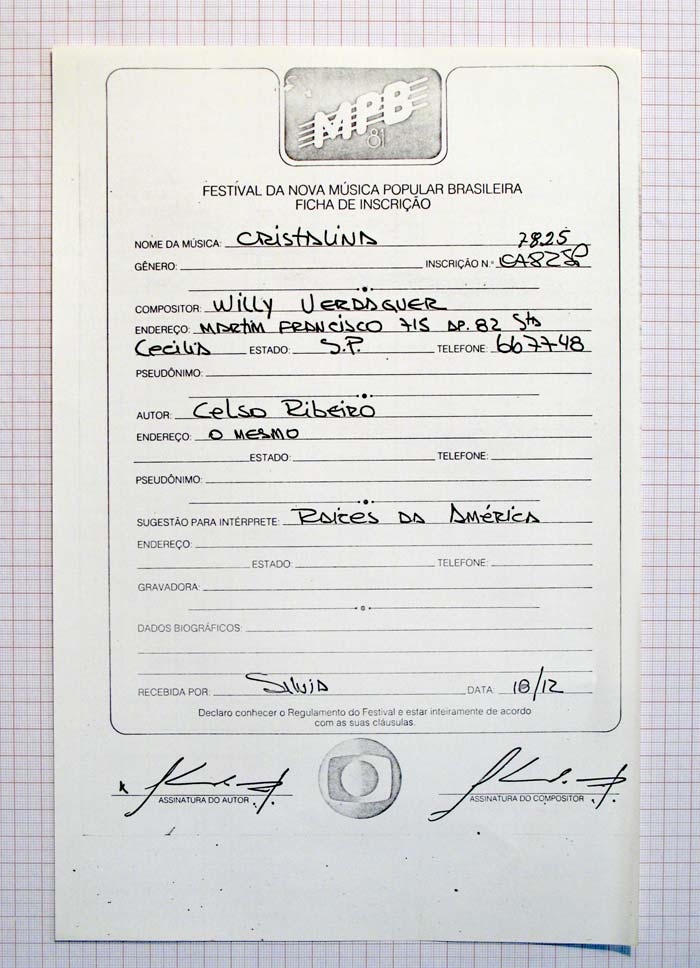 MPB
81
FESTIVAL DA NOVA MÚSICA POPULAR BRASILEIRA
FICHA DE INSCRIÇÃO
NOME DA MÚSICA: CRISTALINA 7825
GÊNERO: INSCRIÇÃO N.º
COMPOSITOR: WILLY VERDAGUER
ENDEREÇO: MARTIM FRANCISCO 715 AP. 82 Sta
Cecilia ESTADO: S.P. TELEFONE: 667748
PSEUDÔNIMO:
AUTOR: Celso Ribeiro
ENDEREÇO: O MESMO
ESTADO: TELEFONE:
PSEUDÔNIMO:
SUGESTÃO PARA INTÉRPRETE: RAICES DA AMÉRICA
ENDEREÇO:
ESTADO: TELEFONE:
GRAVADORA:
DADOS BIOGRÁFICOS:
RECEBIDA POR: Silvia DATA: 18/12
Declaro conhecer o Regulamento do Festival e estar inteiramente de acordo
com as suas cláusulas.
ASSINATURA DO AUTOR ASSINATURA DO COMPOSITOR